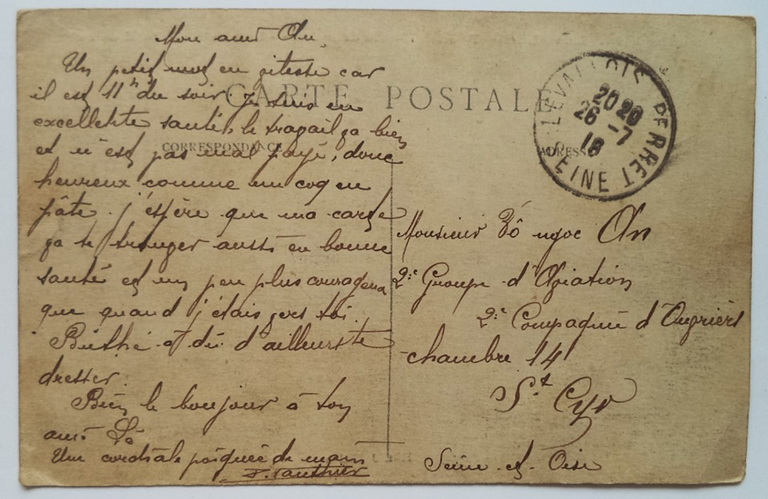 Mon ami An,
Un petit mot en vitesse car
il est 11h du soir, je suis en
excellente santé, le travail ça bien
et n'est pas mal payé, donc
heureux comme un coq en
pâte. j'espère que ma carte
ça te trouver aussi en bonne
santé et un peu plus courageux
que quand j'étais vers toi.
Berthé a dû d'ailleurs te
dresser.
Bien le bonjour à ton
ami Lê
Une cordiale poignée de main
CARTE POSTALE
CORRESPONDANCE
ADRESSE
LEVALLOIS PERRET
20 20
26 - 7
18
SEINE
Monsieur Võ ngoc An
2e Groupe d'Aviation
2e Compagnie d'Ouvriers
chambre 14
St Cyr
Seine et Oise